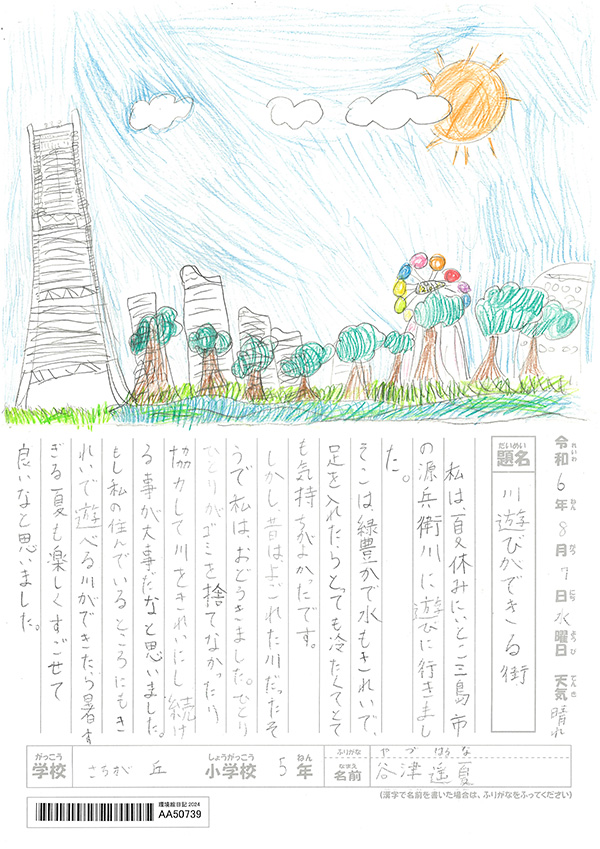 令和6年8月7日水曜日 天気 晴れ
れいわ ねん がつ にち ようび てんき
だいめい
題名 川遊びができる街
私は、夏休みにいとこと三島市
の源兵衛川に遊びに行きまし
た。
そこは緑豊かで水もきれいで、
足を入れたらとても冷たくてとて
も気持ちがよかったです。
しかし、昔はよごれた川だったそ
うで私は、おどろきました。ひとり
ひとりがゴミを捨てなかったり
協力して川をきれいにし続け
る事が大事だなと思いました。
もし私の住んでいるところにもき
れいで遊べる川ができたら暑す
ぎる夏も楽しくすごせて
良いなと思いました。
がっこう しょうがっこう ねん ふりがな やづ はるな
学校 さちが丘 小学校 5年 なまえ 名前 谷津遥夏
(漢字で名前を書いた場合は、ふりがなをふってください)
環境絵日記 2024
AA50739